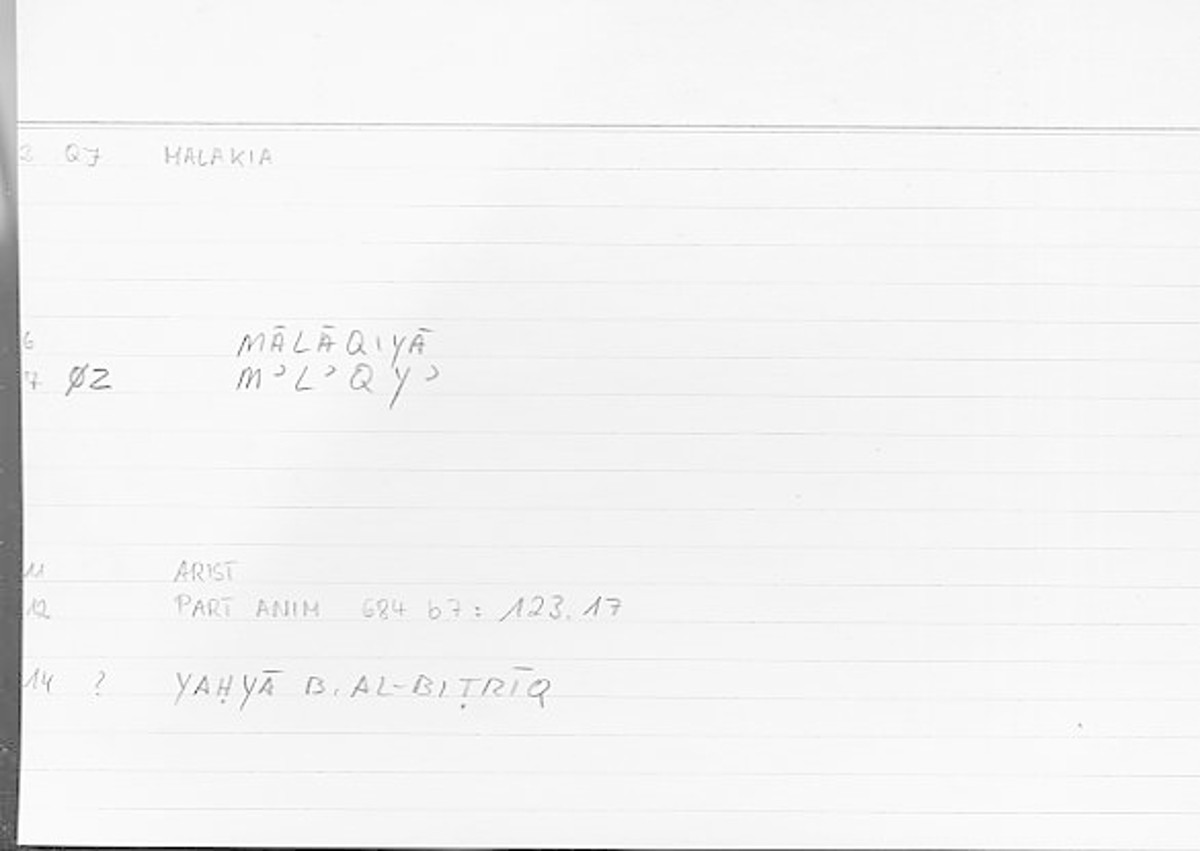 2 Q7 MALAKIA
6 MĀLĀQIYĀ
7 ØZ MʾLʾQYʾ
11 ARIST
12 PART ANIM 684 b7: 123.17
14 ? YAḤYĀ B. AL-BIṬRĪQ